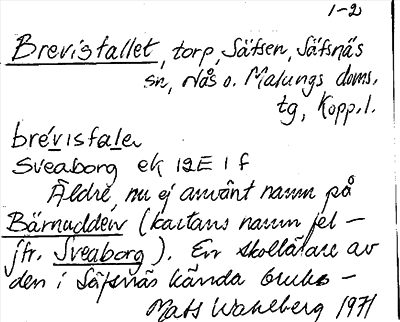 1-2
Brevisfallet, torp, Säfsen, Säfsnäs
sn, Nås o. Malungs doms.
tg, Kopp.l.
brevisfalev
Sveaborg ek 12E 1f
Äldre, nu ej använt namn på
Bärnudden (kartans namn fel –
jfr. Sveaborg). En skollärare av
den i Säfsnäs kända
Mats Wahlberg 1971